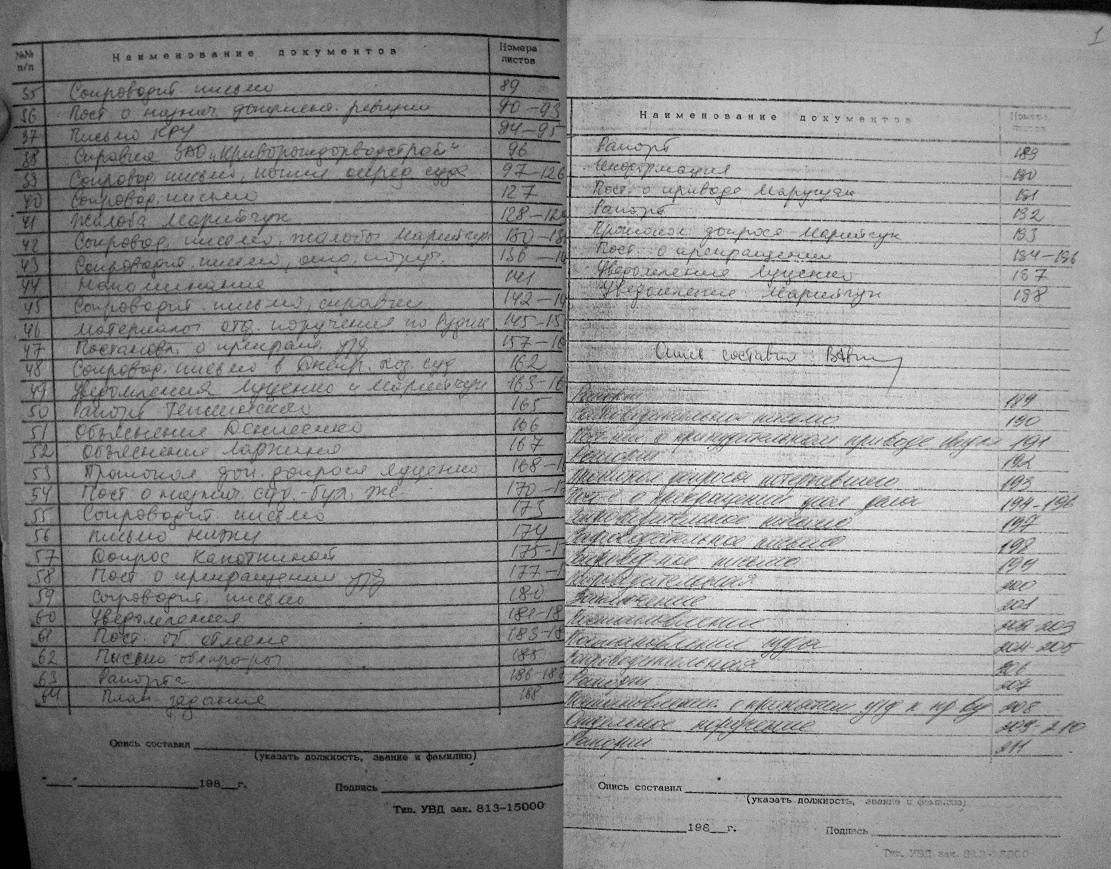 №№ п/п Наименование документов Номера листов
35 Сопроводит. письмо 89
36 Пост. о назнач. документ. ревизии 90-93
37 Письмо КРУ 94-95
38 Справка ЗАО 96
39 Сопровод. письмо, 97-126
40 Сопровод. письмо 127
41 Жалоба Марийчук 128-129
42 Сопровод. письмо, жалобы Марийчук 130-
43 Сопроводит. письмо,
44 Напоминание 141
45 Сопроводит. письмо, справки 142-
46 Материалы отд. поручения по 145-15
47 Постановл. о прекращ. у/д 157-16
48 Сопровод. письмо в суд 162
49 Уведомления Луценко и Марийчук 163-16
50 Рапорт 165
51 Объяснения Денисенко 166
52 Объяснения 167
53 Протокол доп. допроса Луценко 168-1
54 Пост. о назнач. суд.-бух. экс. 170-1
55 Сопроводит. письмо 173
56 Письмо 174
57 Допрос 175-1
58 Пост. о прекращении у/д 177-1
59 Сопроводит. письмо 180
60 Уведомления 181-18
61 Пост. об отмене 183-18
62 Письмо 185
63 Рапорта 186-18
64 План задания 188
Опись составил
(указать должность, звание и фамилию)
" " 198 г. Подпись
Тип. УВД зак. 813-15000
1
Наименование документов Номера листов
Рапорт 189
Информация 190
Пост. о приводе 191
Рапорт 192
Протокол допроса Марийчук 193
Пост. о прекращении 194-196
Уведомление Луценко 197
Уведомление Марийчук 198
Опись составил
Рапорт 189
письмо 190
о принудительном приводе 191
Рапорт 192
Протокол допроса потерпевшего 193
Пост-е о прекращении угол. дела 194-196
Сопроводительное письмо 197
Сопроводительное письмо 198
письмо 199
Сопроводительная 200
201
Постановление 202-203
Постановление суда 204-205
Сопроводительная 206
Рапорт 207
Постановление о принятии у/д к пр-ву 208
Отдельное поручение 209-210
Рапорт 211
Опись составил
(указать должность, звание и фамилию)
198 г. Подпись
Тип. УВД зак. 813-15000